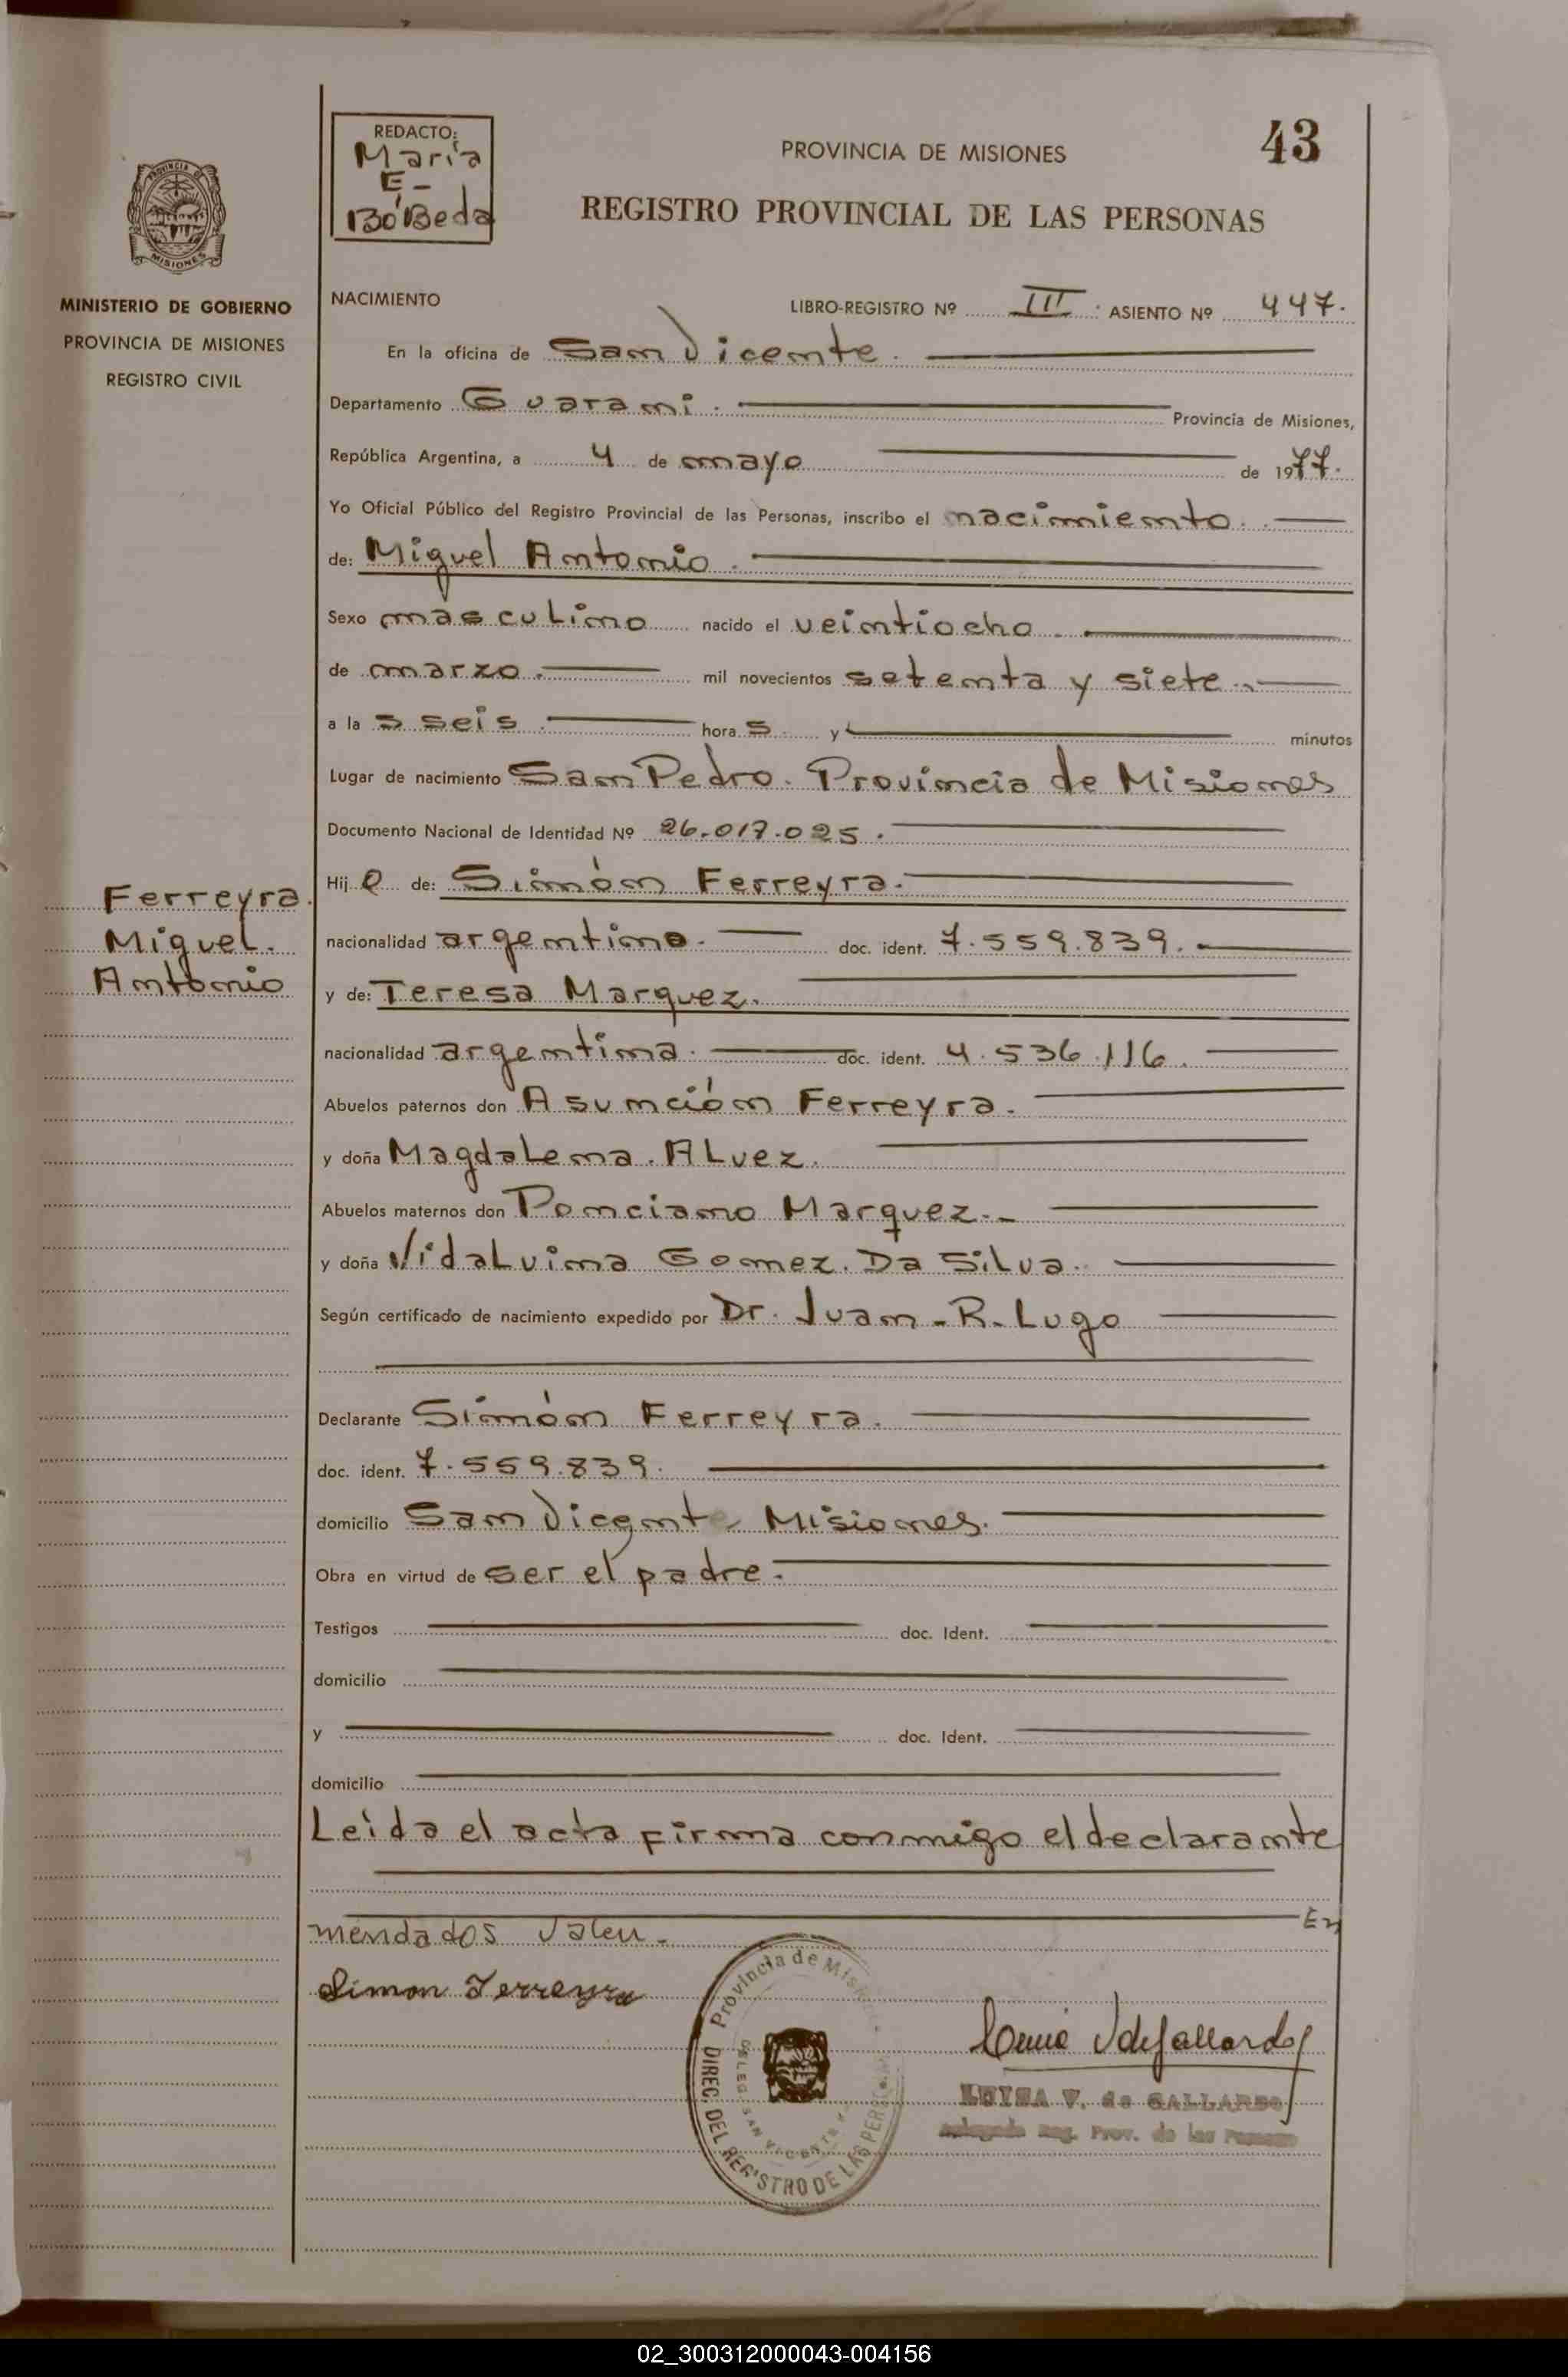 43
REDACTO:
María
E-
BóBeda
PROVINCIA DE MISIONES
REGISTRO PROVINCIAL DE LAS PERSONAS
PROVINCIA DE
MISIONES
MINISTERIO DE GOBIERNO
PROVINCIA DE MISIONES
REGISTRO CIVIL
NACIMIENTO LIBRO-REGISTRO Nº III ASIENTO Nº 447.
En la oficina de San Vicente.
Departamento Guarani. Provincia de Misiones,
República Argentina, a 4 de mayo de 1977.
Yo Oficial Público del Registro Provincial de las Personas, inscribo el nacimiento.
de: Miguel Antonio.
Sexo masculino nacido el veintiocho.
de marzo. mil novecientos setenta y siete.
a la s seis. hora s y minutos
Lugar de nacimiento San Pedro. Provincia de Misiones
Documento Nacional de Identidad Nº 26.017.025.
Hij o de: Simón Ferreyra.
nacionalidad argentino. doc. ident. 7.559.839.
y de: Teresa Marquez.
nacionalidad argentina. doc. ident. 4.536.116.
Abuelos paternos don Asunción Ferreyra.
y doña Magdalena. ALvez.
Abuelos maternos don Ponciano Marquez.
y doña VidaLvina Gomez. Da SiLva.
Según certificado de nacimiento expedido por Dr. Juan-R-Lugo
Declarante Simón Ferreyra.
doc. ident. 7.559.839.
domicilio San Vicente Misiones.
Obra en virtud de ser el padre.
Testigos doc. Ident.
domicilio
y doc. Ident.
domicilio
Leida el acta firma conmigo el declarante
En
mendados Valen.
Simon Ferreyra
Ferreyra.
MigueL.
Antonio
Provincia de Misiones
DIREC. DEL REGISTRO DE LAS PERSONAS
DELEG. SAN VICENTE
Luisa V de Gallardo
LUISA V. de GALLARDO
Reg. Prov. de las Personas
02_300312000043-004156